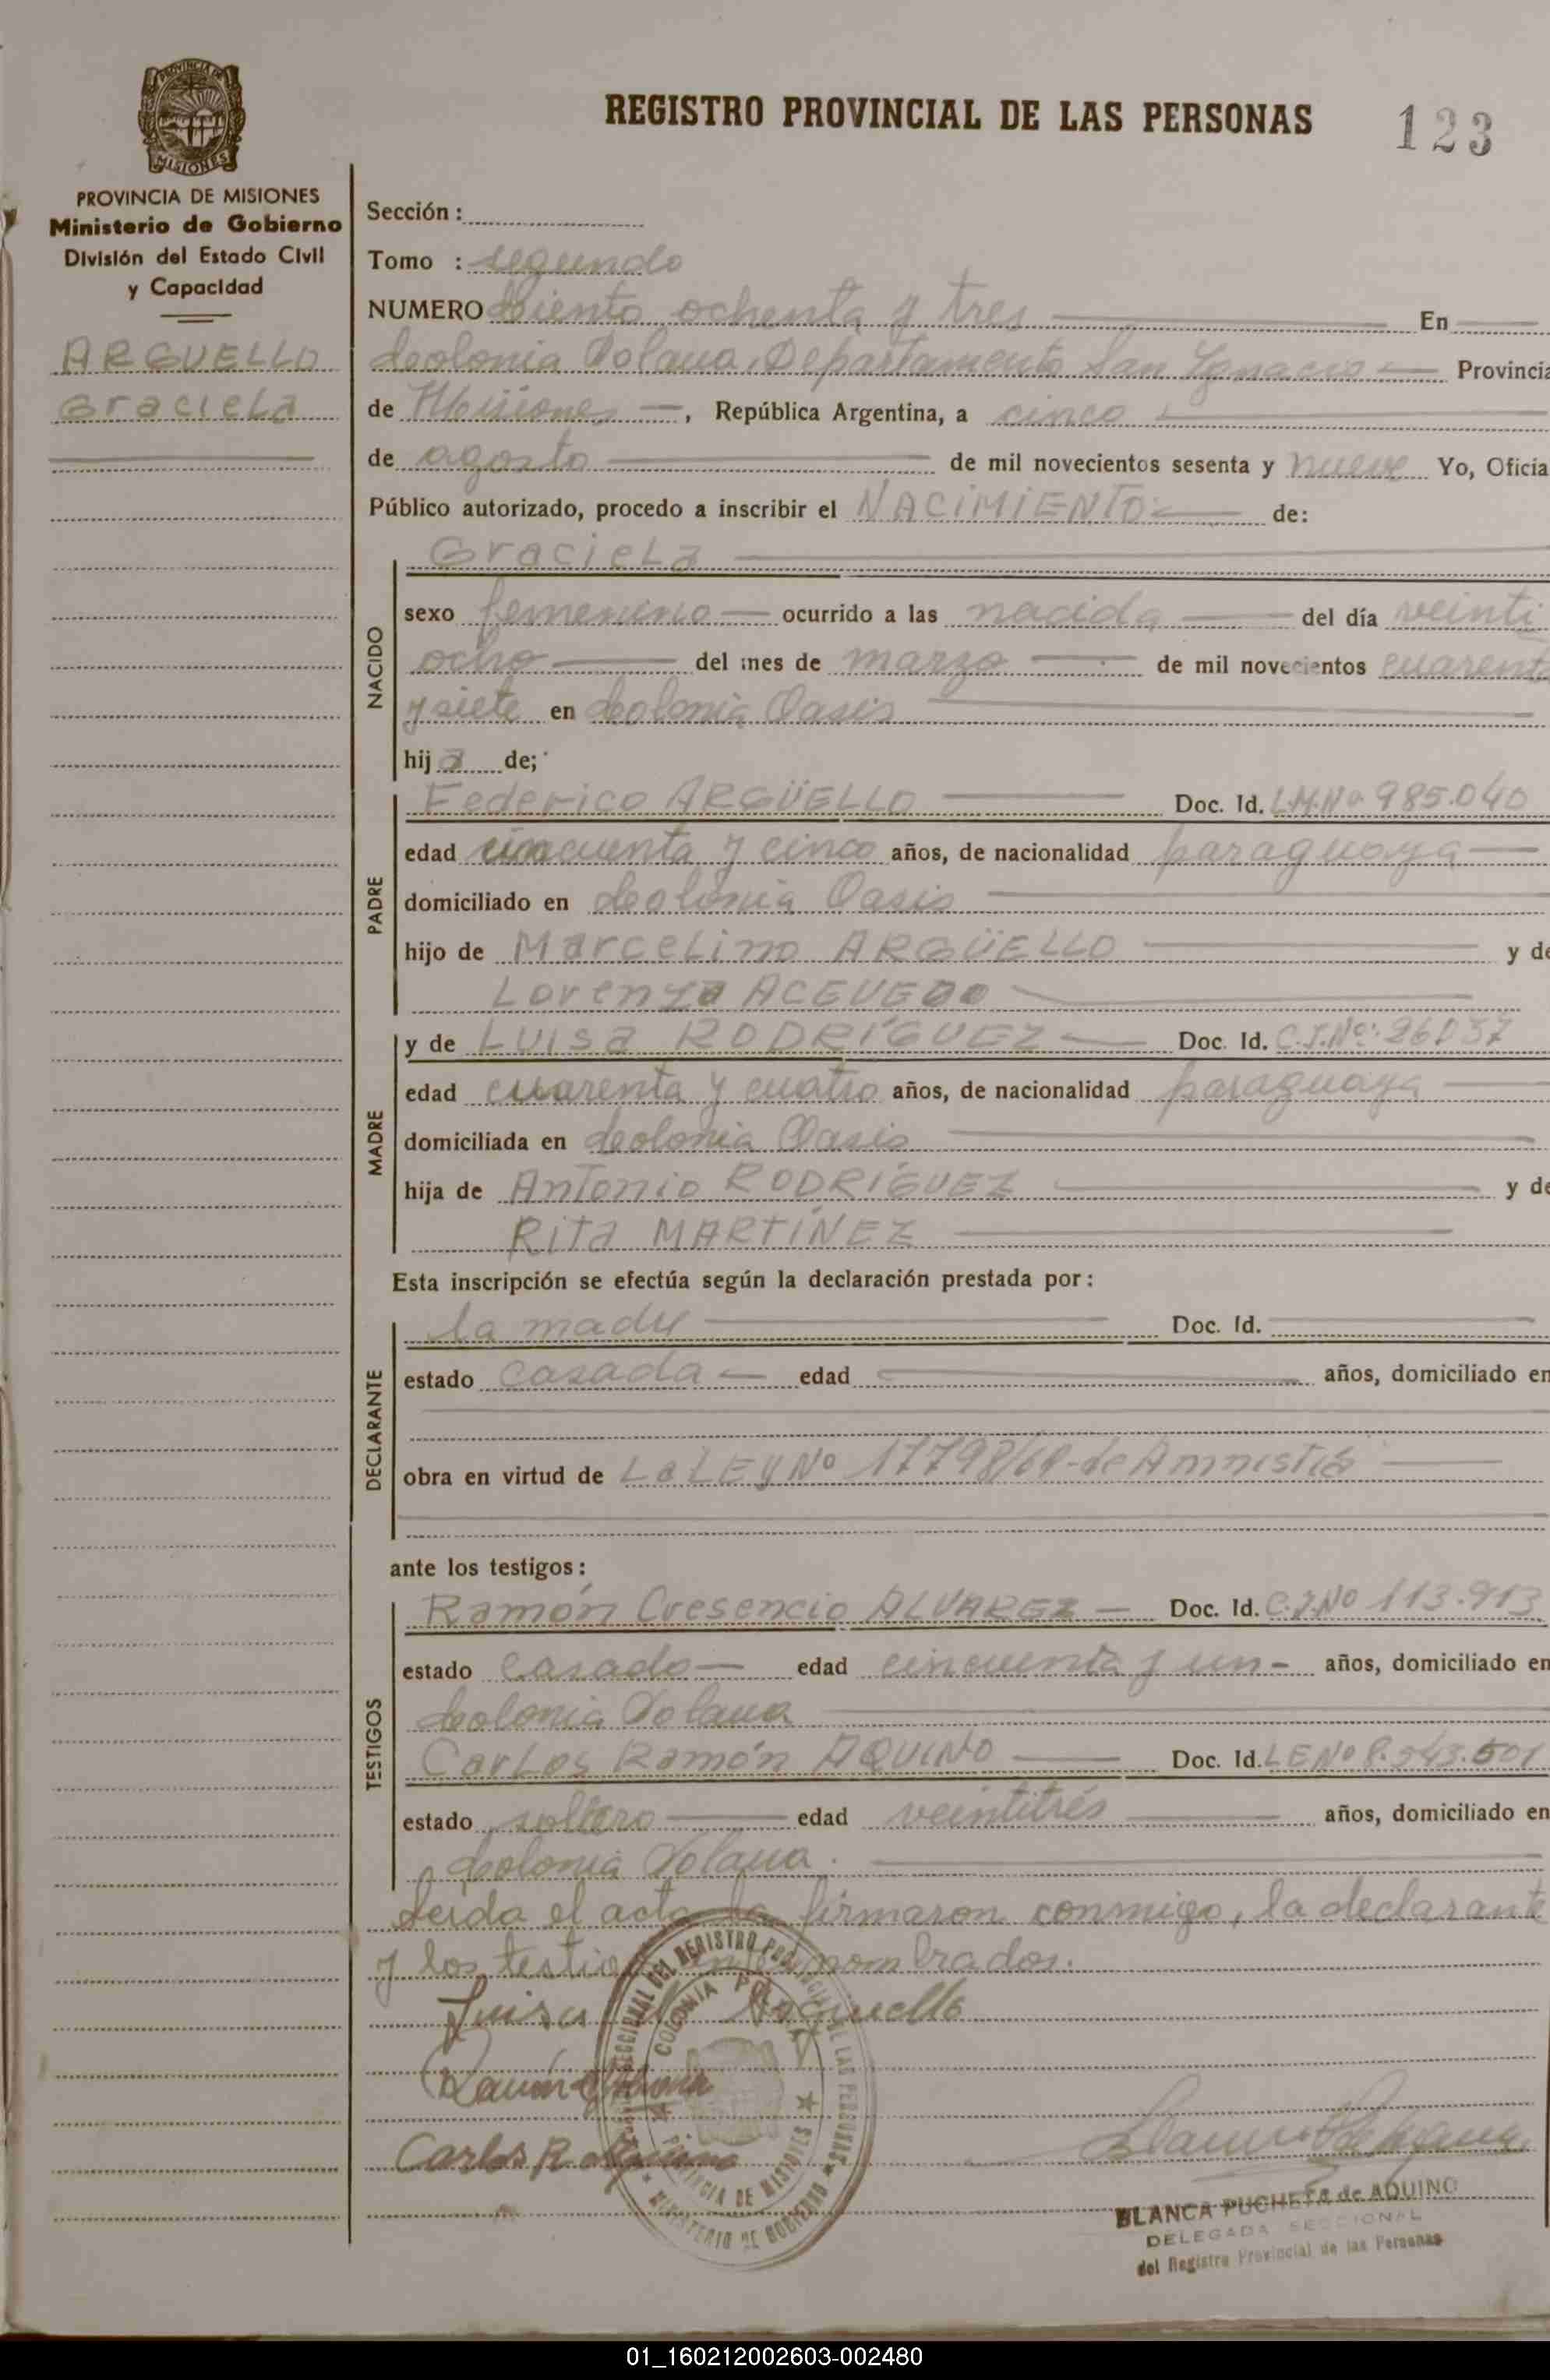 PROVINCIA DE
MISIONES
PROVINCIA DE MISIONES
Ministerio de Gobierno
División del Estado Civil
y Capacidad
ARGUELLO
Graciela
REGISTRO PROVINCIAL DE LAS PERSONAS 123
Sección :
Tomo : segundo
NUMERO Ciento ochenta y tres En
Colonia Polana, Departamento San Ignacio Provincia
de Misiones, República Argentina, a cinco
de agosto de mil novecientos sesenta y nueve Yo, Oficia
Público autorizado, procedo a inscribir el NACIMIENTO de:
NACIDO
Graciela
sexo femenino ocurrido a las nacida del día veinti
ocho del mes de marzo de mil novecientos cuarent
y siete en Colonia Oasis
hij a de;
PADRE
Federico ARGÜELLO Doc. Id. L.M.Nº 985.040
edad cincuenta y cinco años, de nacionalidad paraguaya
domiciliado en Colonia Oasis
hijo de Marcelino ARGÜELLO y de
Lorenza ACEVEDO
MADRE
y de Luisa RODRÍGUEZ Doc. Id. C.I.Nº:
edad cuarenta y cuatro años, de nacionalidad paraguaya
domiciliada en Colonia Oasis
hija de Antonio RODRÍGUEZ y de
Rita MARTÍNEZ
Esta inscripción se efectúa según la declaración prestada por :
DECLARANTE
la madre Doc. Id.
estado casada edad años, domiciliado en
obra en virtud de La LEY Nº 17798/68 - de Amnistía
ante los testigos :
TESTIGOS
Ramón Cresencio ALVAREZ Doc. Id. C.I.Nº 113.913
estado casado edad cincuenta y un años, domiciliado en
Colonia Polana
Carlos Ramón AQUINO Doc. Id. LE Nº 8.543.501
estado soltero edad veintitrés años, domiciliado en
Colonia Polana.
Leida el acta la firmaron conmigo, la declarante
y los testigos nombrados.
Luisa R de Arguello
Ramón
Carlos R Aquino
SECCIONAL DEL REGISTRO PROVINCIAL DE LAS PERSONAS
COLONIA POLANA
PROVINCIA DE MISIONES
MINISTERIO DE GOBIERNO
BLANCA PUCHETA de AQUINO
DELEGADA SECCIONAL
del Registro Provincial de las Personas
01_160212002603-002480